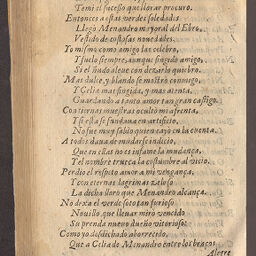 Temi el sucesso que llorar procuro.
Entonces a estas verdes soledades
Llegò Menandro mayoral del Ebro,
Vestido de costosas nouedades.
Yo mismo como amigo las celebro,
Y suelo siempre, aunque fingido amigo,
Si el ñudo aleue con dezirlo quebro.
Mas dulce, y blando se mostrò conmigo,
Y Celia mas fingida, y mas atenta,
Guardando a tanto amor tan gran castigo.
Con tiernas muestras ocultò mi afrenta,
Y si esta se fundaua en artificio,
No fue muy sabio quien cayò en la cuenta.
A todos daua de mudarse indicio,
Que en ellas no es infame la mudança,
Y el nombre trueca la costumbre al vicio.
Perdio el respeto amor a mi vengança,
Y con eternas lagrimas zeloso
La dicha lloro que Menandro alcança.
No dexa el verde soto tan furioso
Nouillo, que lleuar miro vencido
Su prenda nueuo dueño vitorioso:
Como yo desdichado aborrecido,
Que a Celia de Menandro entre los braços
Alegre